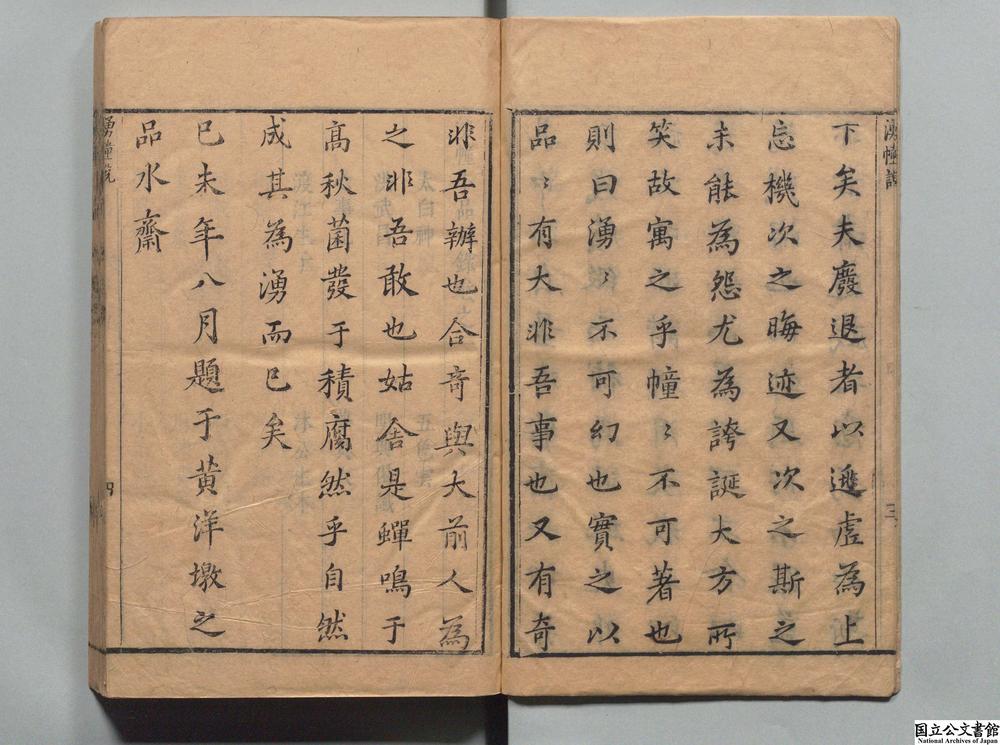 湧幢說
三
下矣夫廢退者以逃虛為上
忘機次之晦迹又次之斯之
未能為怨尤為誇誕大方所
笑故寓之乎幢〻不可著也
則曰湧〻不可幻也實之以
品品有大非吾事也又有奇
非吾辦也合奇與大前人為
之非吾敢也姑舍是蟬鳴于
高秋菌發于積腐然乎自然
成其為湧而已矣
已未年八月題于黃洋墩之
品水齋
湧幢說
四
国立公文書館
National Archives of Japan